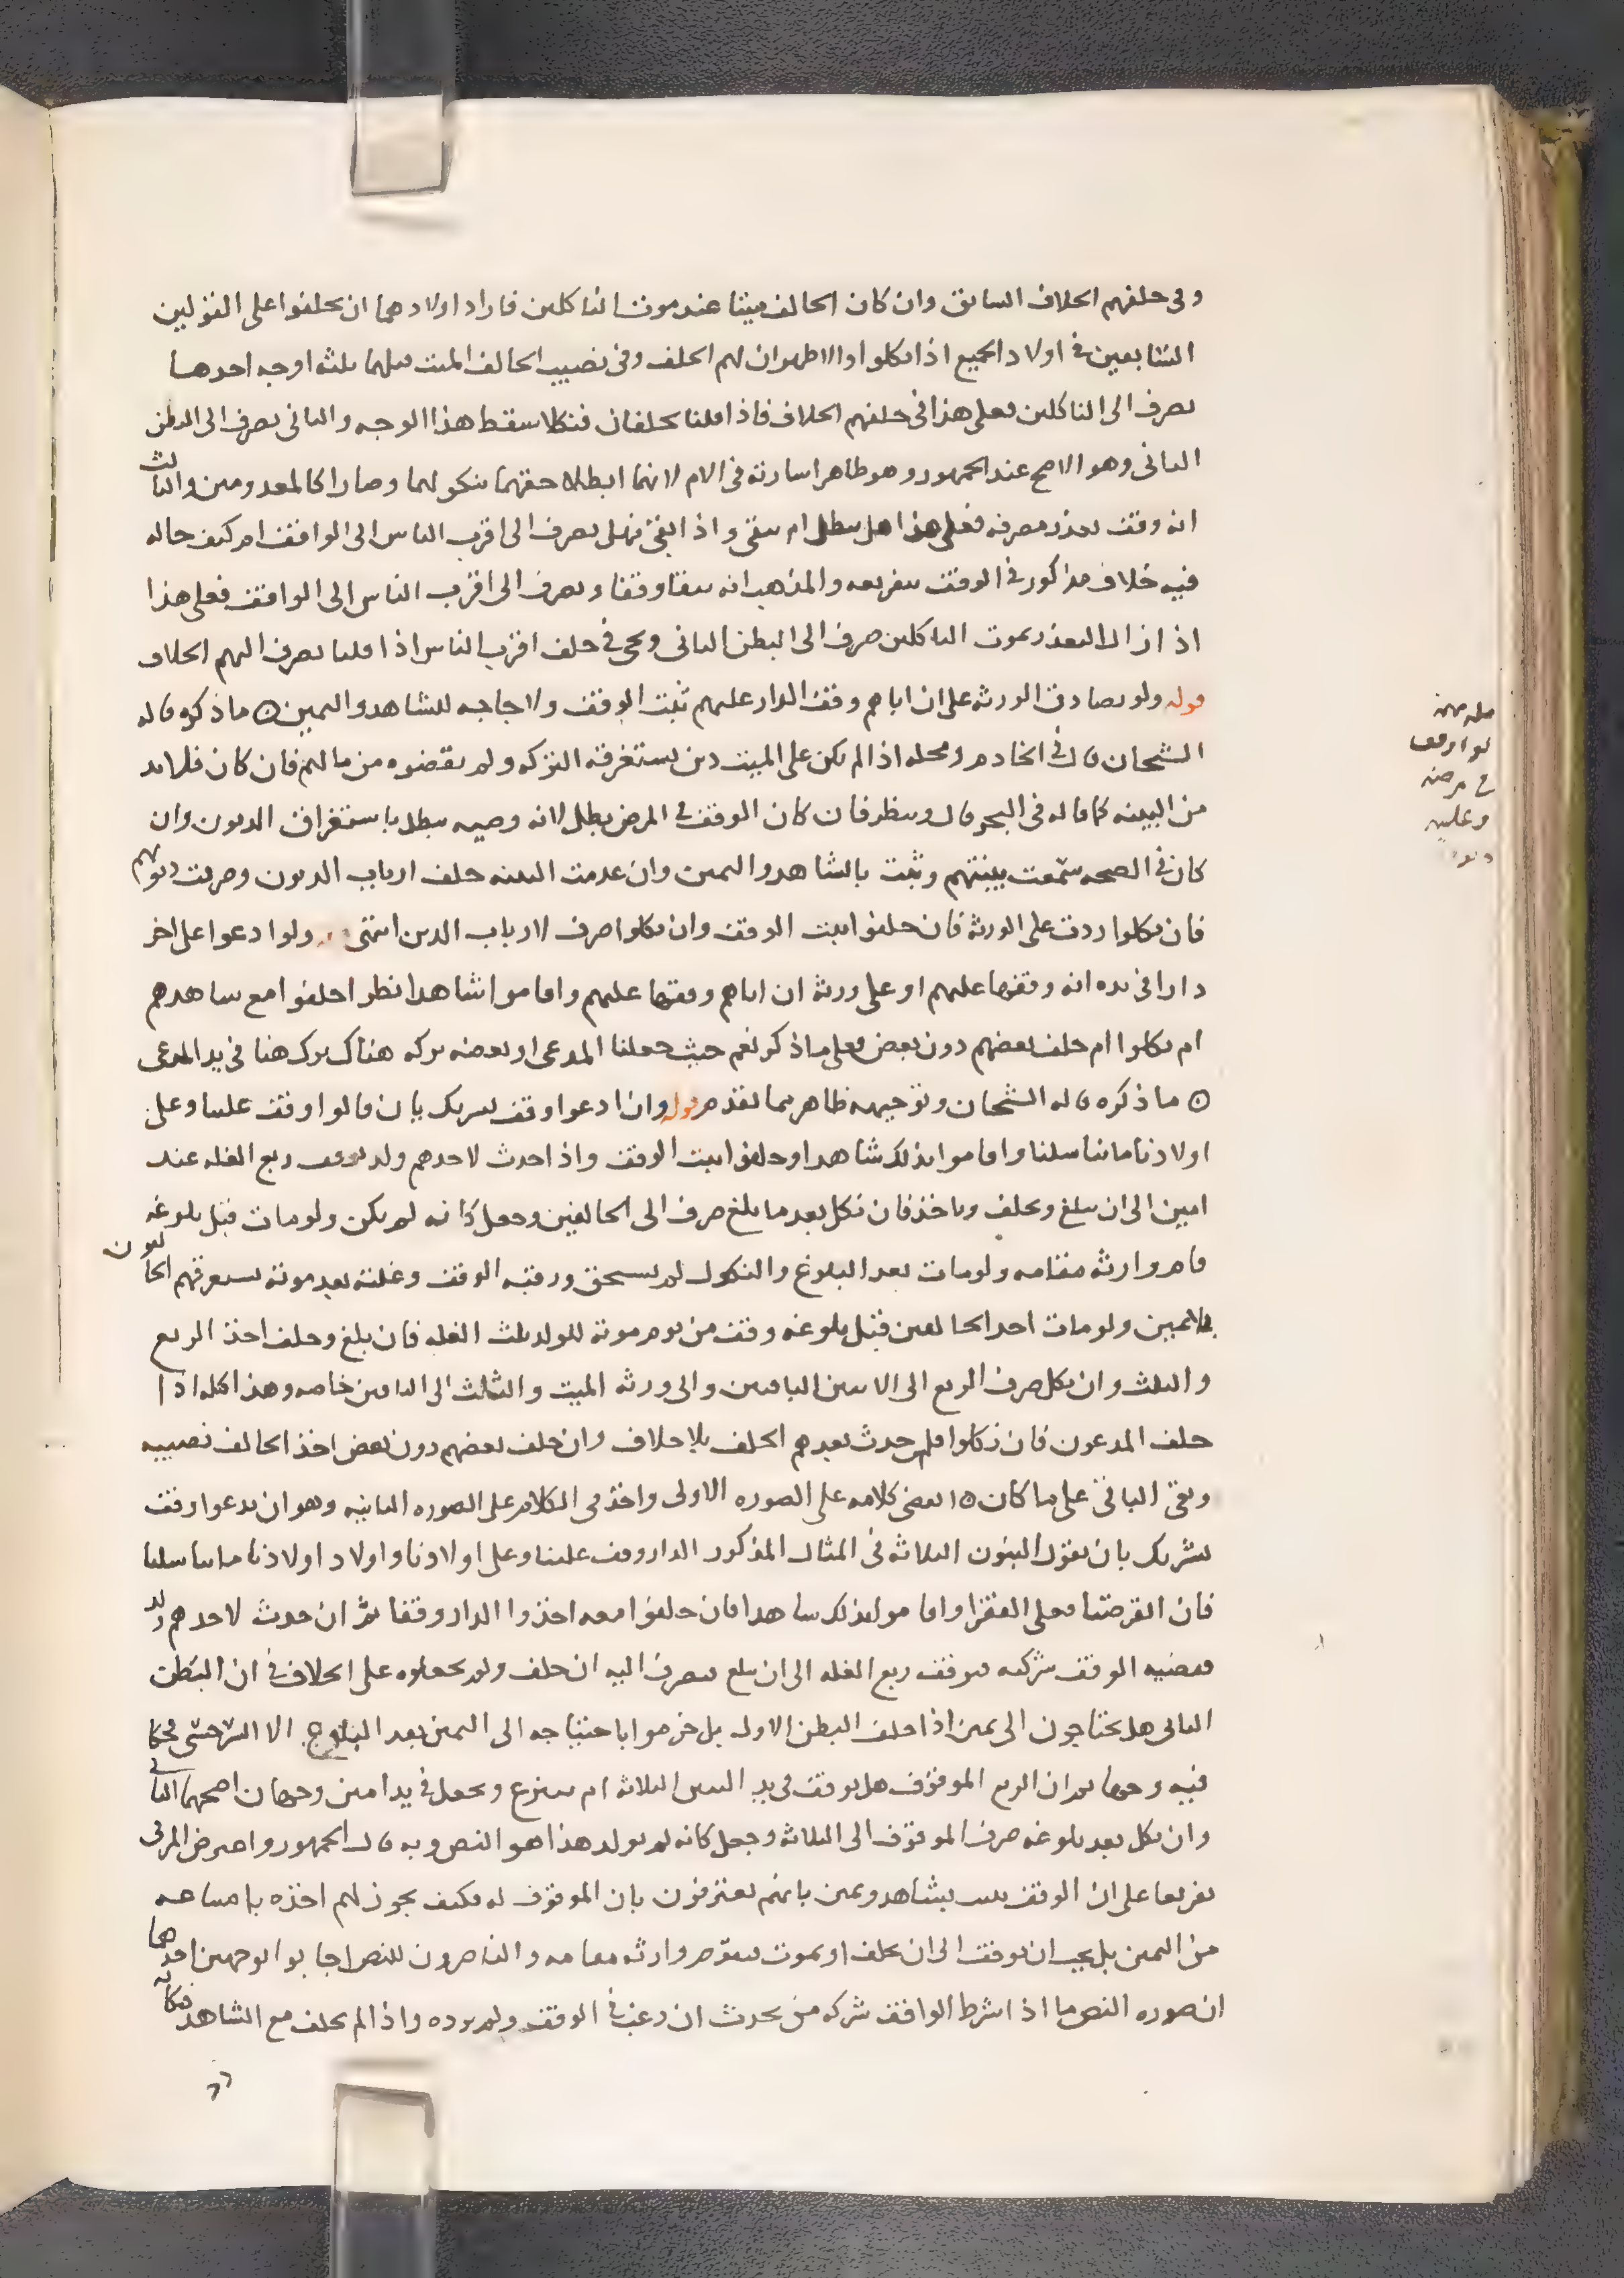 وفي حلفهم الخلاف السابق وان كان الحالف ميتا عند موت الناكلين فاراد اولادهما ان يحلفوا على القولين
السابقين في اولاد الجميع اذا نكلوا والاظهر ان لهم الحلف وفي نصيب الحالف الميت قبلهما ثلثة اوجه احدها
يصرف الى الناكلين فعلى هذا في حلفهم الخلاف فاذا قلنا يحلفان فنكلا سقط هذا الوجه والثاني يصرف الى البطن
الثاني وهو الاصح عند الجمهور وهو ظاهر اشارته في الام لانهما ابطلا حقهما بنكولهما وصارا كالمعدومين والثالث
انه وقف تعذر مصرفه فعلى هذا هل يبطل ام يبقى واذا بقي فهل يصرف الى اقرب الناس الى الواقف ام كيف حاله
فيه خلاف مذكور في الوقف بتفريعه والمذهب انه يبقا وقفا ويصرف الى اقرب الناس الى الواقف فعلى هذا
اذا زال التعذر بموت الناكلين صرف الى البطن الثاني ويجى في حلف اقرب الناس اذا قلنا يصرف اليهم الخلاف
قوله ولو تصادق الورثه على ان اباهم وقف الدار عليهم ثبت الوقف ولا حاجه للشاهد واليمين ه ما ذكره قاله
الشيخان قال في الخادم ومحله اذا لم يكن على الميت دين يستغرقه التركه ولم يقضوه من مالهم فان كان فلا بد
من البينه كما قاله في البحر قال وينظر فان كان الوقف في المرض بطل لانه وصيه يبطل باستغراق الديون وان
كان في الصحه سمعت بينتهم وثبت بالشاهد واليمين وان عدمت البينه حلف ارباب الديون وصرفت ديونهم
فان نكلوا ردت على الورثه فان حلفوا ثبت الوقف وان نكلوا صرف لارباب الدين انتهى ولو ادعوا على اخر
دارا في يده انه وقفها عليهم او على ورثه ان اباهم وقفها عليهم واقاموا شاهدا نظر احلفوا مع شاهدهم
ام نكلوا ام حلف بعضهم دون بعض فعلى ما ذكر نعم حيث جعلنا المدعى او بعضه تركه هناك ترك هنا في يد المدعى
ه ما ذكره قاله الشيخان وتوجيهه ظاهر مما تقدم قوله وان ادعوا وقف تشريك بان قالوا وقف علينا وعلى
اولادنا ما تناسلنا واقاموا بذلك شاهدا وحلفوا ثبت الوقف واذا حدث لاحدهم ولد توقف ربع الغله عند
امين الى ان يبلغ ويحلف وياخذ فان نكل بعد ما بلغ صرف الى الحالفين وجعل كانه لم يكن ولو مات قبل بلوغه
قام وارثه مقامه ولو مات بعد البلوغ والنكول لم يستحق ورقبه الوقف وغلته بعد موته يستغرقهم الحالفون
بلا يمين ولو مات احد الحالفين قبل بلوغه وقف من يوم موته للولد ثلث الغله فان بلغ وحلف اخذ الربع
والثلث وان نكل صرف الربع الى الاثنين الباقيين والى ورثه الميت والثلث الى الباقين خاصه وهذا كله اذا
حلف المدعون فان نكلوا فلمن حدث بعدهم الحلف بلا خلاف وان حلف بعضهم دون بعض اخذ الحالف نصيبه
وبقي الباقي على ما كان ه انقضى كلامه على الصوره الاولى واخذ في الكلام على الصوره الثانيه وهو ان يدعوا وقف
تشريك بان يقول البنون الثلاثه في المثال المذكور الدار وقف علينا وعلى اولادنا واولاد اولادنا ما تناسلنا
فان انقرضنا فعلى الفقرا واقاموا بذلك شاهدا فان حلفوا معه اخذوا الدار وقفا ثم ان حدث لاحدهم ولد
فقضيه الوقف شركته فيوقف ربع الغله الى ان يبلغ فيصرف اليه ان حلف ولم يجعلوه على الخلاف في ان البطن
الثاني هل يحتاجون الى يمين اذا حلف البطن الاول بل جزموا باحتياجه الى اليمين بعد البلوغ الا السرخسي فحكا
فيه وجها ثم ان الربع الموقوف هل يوقف في يد البنين الثلاثه ام ينزع ويجعل في يد امين وجهان اصحهما الثاني
وان نكل بعد بلوغه صرف الموقوف الى الثلاثه وجعل كانه لم يولد هذا هو النص وبه قال الجمهور واعترض المزني
تفريعا على ان الوقف يثبت بشاهد ويمين بانهم يعترفون بان الموقوف له فكيف يجوز لهم اخذه بامتناعه
من اليمين بل يجب ان يوقف الى ان يحلف او يموت فيقوم وارثه مقامه والناصرون للنص اجابوا بوجهين احدهما
ان صوره النص ما اذا شرط الواقف شركه من يحدث ان رغب في الوقف ولم يرده واذا لم يحلف مع الشاهد فكانه
لو اوقف
في مرضه
وعليه